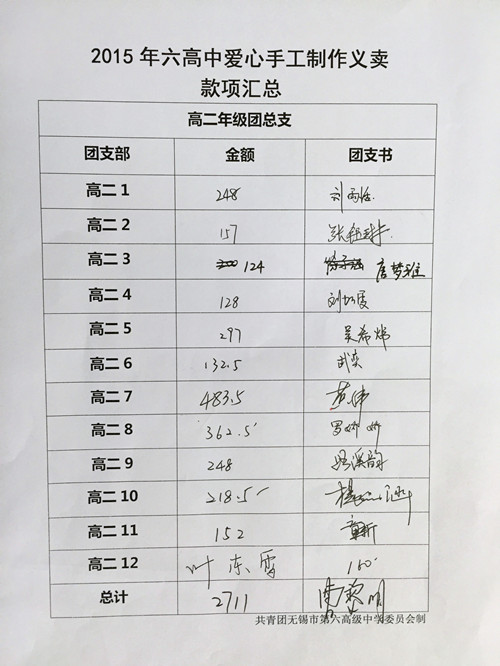 2015年六高中爱心手工制作义卖
款项汇总
高二年级团总支
团支部 金额 团支书
高二1 248
高二2 157
高二3 124 唐梦雅
高二4 128
高二5 297 吴希炜
高二6 132.5 武奕
高二7 483.5 黄伟
高二8 362.5 罗娇娇
高二9 248
高二10 218.5
高二11 152
高二12 叶东雪 160
总计 2711
共青团无锡市第六高级中学委员会制